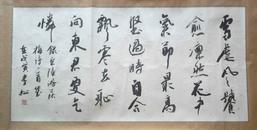 雪虐風饕
愈凛然花中
氣節最高
堅過時自合
飄零去恥
向東君更乞
憐
梅詩一首